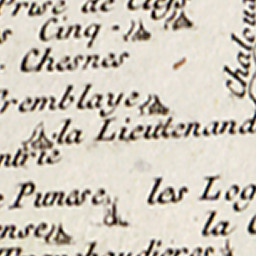 Prise de
s Cinq
Chesnes
Tremblaye
la Lieutenand
ntrie
Punese
les Log
ense
la